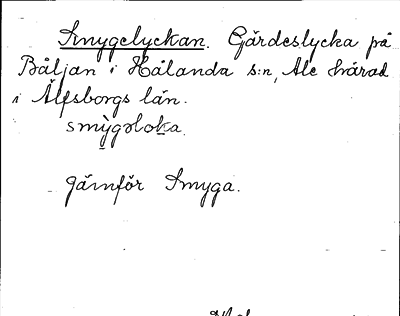 Smygelyckan. Gärdeslycka på
Båljan i Hålanda s:n, Ale härad
i Älfsborgs län.
smỳgəloka.
Jämför Smyga.